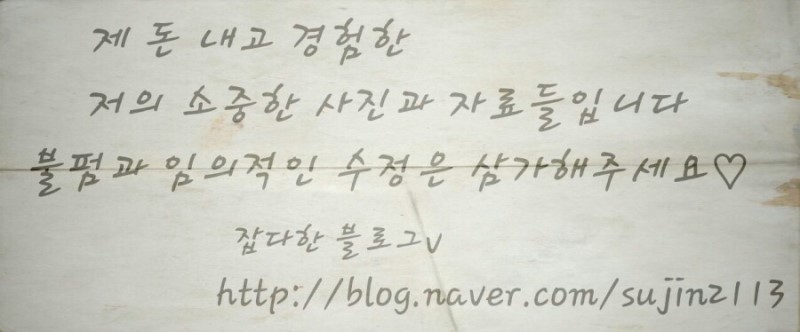 제 돈 내고 경험한
저의 소중한 사진과 자료들입니다
불펌과 임의적인 수정은 삼가해주세요♡
잡다한 블로그v
http://blog.naver.com/sujin2113